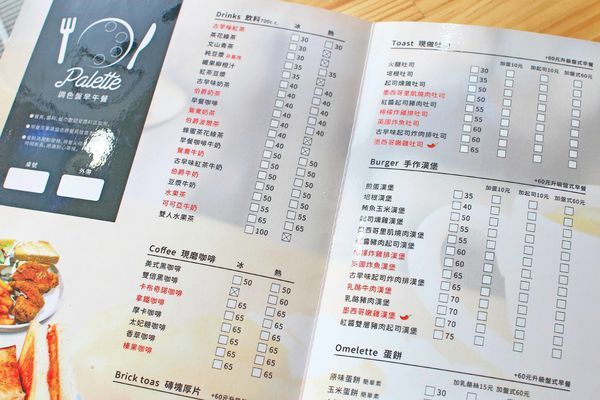 Palette
調色盤早午餐
桌號 外帶
Drinks 飲料700c.c. 冰 熱
古早味紅茶 30
茶花綠茶 30 30
文山青茶 30
純豆漿 35
鐵果柳橙汁 35
紅茶豆漿 40
古早味奶茶 40 40
伯爵奶茶 40 40
早餐咖啡 40 40
鴛鴦奶茶 40 40
伯爵波思茶 40
蜂蜜茶花綠茶 40
早餐奶茶
鴛鴦牛奶 50
古早味紅茶牛奶 50 50
伯爵牛奶 50 50
豆漿牛奶 50 50
水果茶 55 55
可可亞牛奶 65 65
雙人水果茶 100
Coffee 現磨咖啡 冰 熱
美式黑咖啡 50 50
雙倍黑咖啡 60
卡布奇諾咖啡 65
拿鐵咖啡 65 65
摩卡咖啡 65 65
太妃糖咖啡 65 65
香草咖啡 65 65
榛果咖啡 65 65
Brick toas 磚塊厚片
Toast 現做吐司 +60元升級盤式早餐
加蛋10元 加起司10元 加盤式60元
火腿吐司 30
培根吐司 35
起司燻雞吐司
墨西哥里肌燒肉吐司 50
紅醬起司豬肉吐司 50
檸檬炸雞排吐司 55
英國炸魚吐司 55
古早味起司炸肉排吐司
墨西哥嫩雞吐司 65
Burger 手作漢堡 +60元升級盤式早餐
加蛋10元 加起司10元 加盤式60元
煎蛋漢堡 35
培根漢堡 40
鮪魚玉米漢堡 45
起司燻雞漢堡 50
墨西哥里肌燒肉漢堡 55
紅醬豬肉起司漢堡 55
檸檬炸雞漢堡 60
英國炸魚漢堡 60
古早味起司炸肉排漢堡
乳酪牛肉漢堡 65
乳酪豬肉漢堡 70
墨西哥嫩雞漢堡 70
紅醬雙層豬肉起司漢堡 75
Omelette 蛋餅 +60元升級盤式早餐
加乳酪絲15元 加盤式60元
原味蛋餅 簡單素 30
玉米蛋餅 簡單素